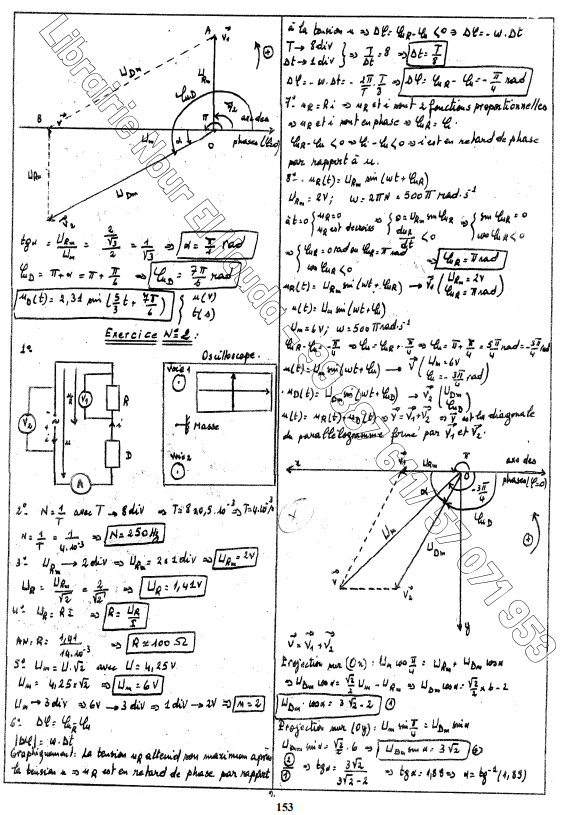 A
V⃗₁
U_Dm
U_Rm
+
φ_uD
π
π/2
B
U_m
α
O
axe des
phases (φ=0)
U_Rm
U_Dm
V⃗₂
tgα = U_Rm/U_m = (2/√3)/2 = 1/√3 ⇒ α = π/6 rad
φ_uD = π+α = π + π/6 ⇒ φ_uD = 7π/6 rad
u_D(t) = 2,31 sin(5/3 t + 7π/6) { u(V) t(s)
Exercice N°2 :
1°
Oscilloscope
Voie 1
V₂
V₁
u_R
R
u
i
D
A
Masse
Voie 2
2° N = 1/T avec T → 8 div ⇒ T = 8×0,5.10⁻³ ⇒ T = 4.10⁻³ s
N = 1/T = 1/4.10⁻³ ⇒ N = 250 Hz
3° U_Rm → 2 div ⇒ U_Rm = 2×1 div ⇒ U_Rm = 2V
U_R = U_Rm/√2 = 2/√2 ⇒ U_R = 1,41V
4° U_R = R I ⇒ R = U_R/I
AN: R = 1,41/14.10⁻³ ⇒ R ≃ 100 Ω
5° U_m = U.√2 avec U = 4,25V
U_m = 4,25×√2 ⇒ U_m = 6V
U_m → 3 div ⇒ 6V → 3 div ⇒ 1 div → 2V ⇒ n = 2
6° Δφ = φ_uR - φ_u
|Δφ| = w.Δt
Graphiquement: La tension u_R atteind son maximum après
la tension u ⇒ u_R est en retard de phase par rapport
à la tension u ⇒ Δφ = φ_uR - φ_u < 0 ⇒ Δφ = -w.Δt
T → 8 div
Δt → 1 div } ⇒ T/Δt = 8 ⇒ Δt = T/8
Δφ = -w.Δt = -2π/T . T/8 ⇒ Δφ = φ_uR - φ_u = -π/4 rad
7° u_R = R i ⇒ u_R et i sont 2 fonctions proportionnelles
⇒ u_R et i sont en phase ⇒ φ_uR = φ_i
φ_uR - φ_u < 0 ⇒ φ_i - φ_u < 0 ⇒ i est en retard de phase
par rapport à u.
8° u_R(t) = U_Rm sin(wt + φ_uR)
U_Rm = 2V ; w = 2πN = 500π rad.s⁻¹
à t=0 { u_R = 0 u_R est décrois ⇒ { 0 = U_Rm sin φ_uR du_R/dt < 0 ⇒ { sin φ_uR = 0 cos φ_uR < 0
⇒ { φ_uR = 0 rad ou φ_uR = π rad cos φ_uR < 0 ⇒ φ_uR = π rad
u_R(t) = U_Rm sin(wt + φ_uR) → V⃗₁ ( U_Rm = 2V φ_uR = π rad )
u(t) = U_m sin(wt + φ_u)
U_m = 6V ; w = 500π rad.s⁻¹
φ_uR - φ_u = -π/4 ⇒ φ_u = φ_uR + π/4 ⇒ φ_u = π + π/4 = 5π/4 rad = -3π/4 rad
u(t) = U_m sin(wt + φ_u) → V⃗ ( U_m = 6V φ_u = -3π/4 rad )
u_D(t) = U_Dm sin(wt + φ_uD) → V⃗₂ ( U_Dm φ_uD )
u(t) = u_R(t) + u_D(t) ⇒ V⃗ = V⃗₁ + V⃗₂ ⇒ V⃗ est la diagonale
du parallélogramme formé par V⃗₁ et V⃗₂.
x
V⃗₁
U_Rm
π
O
axe des
phases (φ=0)
α
-3π/4
φ_uD
U_m
U_Dm
+
V⃗
V⃗₂
y
V⃗ = V⃗₁ + V⃗₂
Projection sur (Ox) : U_m cos π/4 = U_Rm + U_Dm cosα
⇒ U_Dm cosα = √2/2 U_m - U_Rm ⇒ U_Dm cosα = √2/2 × 6 - 2
U_Dm . cosα = 3√2 - 2 ①
Projection sur (Oy) : U_m sin π/4 = U_Dm sinα
U_Dm sinα = √2/2 . 6 ⇒ U_Dm sinα = 3√2 ②
②/① ⇒ tgα = 3√2/(3√2-2) ⇒ tgα = 1,89 ⇒ α = tg⁻¹(1,89)
153
Librairie Nour El Houda
071 953